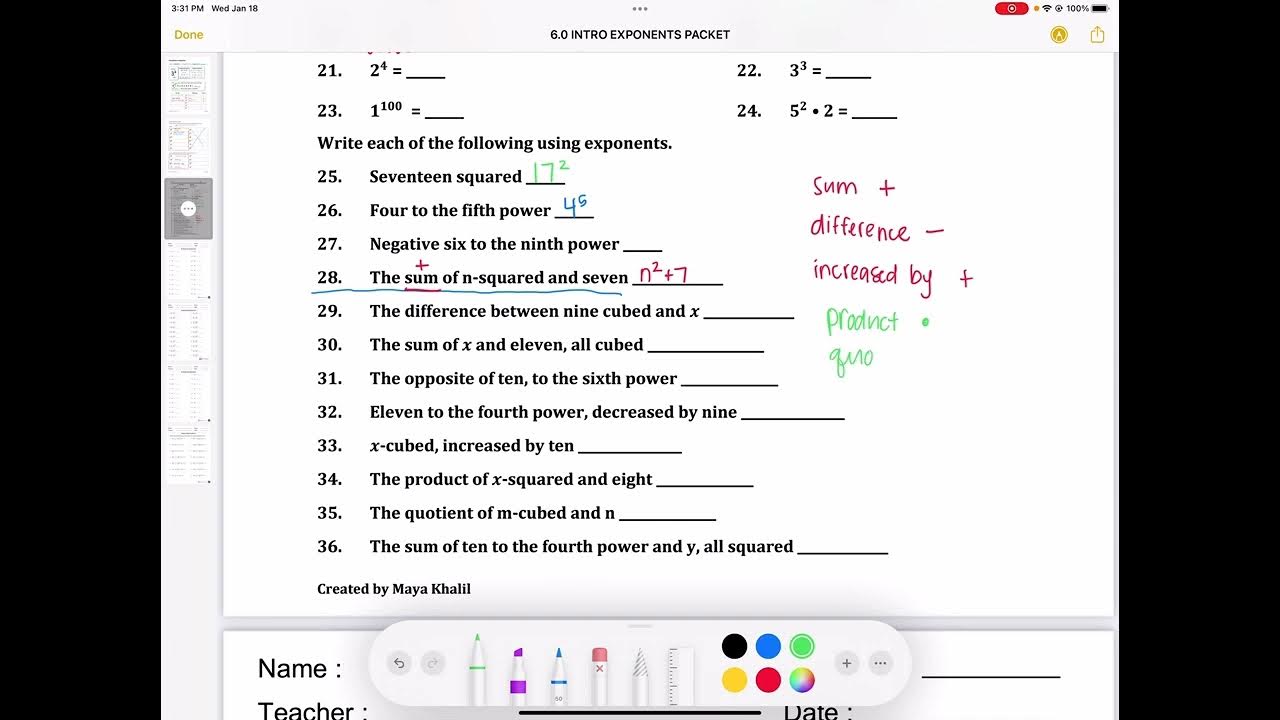 3:31 PM Wed Jan 18
100%
Done
6.0 INTRO EXPONENTS PACKET
21. 2⁴ = ____
22. 3³ = ______
23. 1¹⁰⁰ = ____
24. 5² • 2 = _____
Write each of the following using exponents.
25. Seventeen squared 17²
26. Four to the fifth power 4⁵
27. Negative six to the ninth power ____
+
28. The sum of n-squared and seven n²+7
29. The difference between nine cubed and x __________
30. The sum of x and eleven, all cubed ____________
31. The opposite of ten to the sixth power __________
32. Eleven to the fourth power, decreased by nine ___________
33. r-cubed, increased by ten ___________
34. The product of x-squared and eight __________
35. The quotient of m-cubed and n __________
36. The sum of ten to the fourth power and y, all squared _________
Created by Maya Khalil
Sum +
difference −
increased by +
product •
quo
Name :
Teacher :
Date :
50